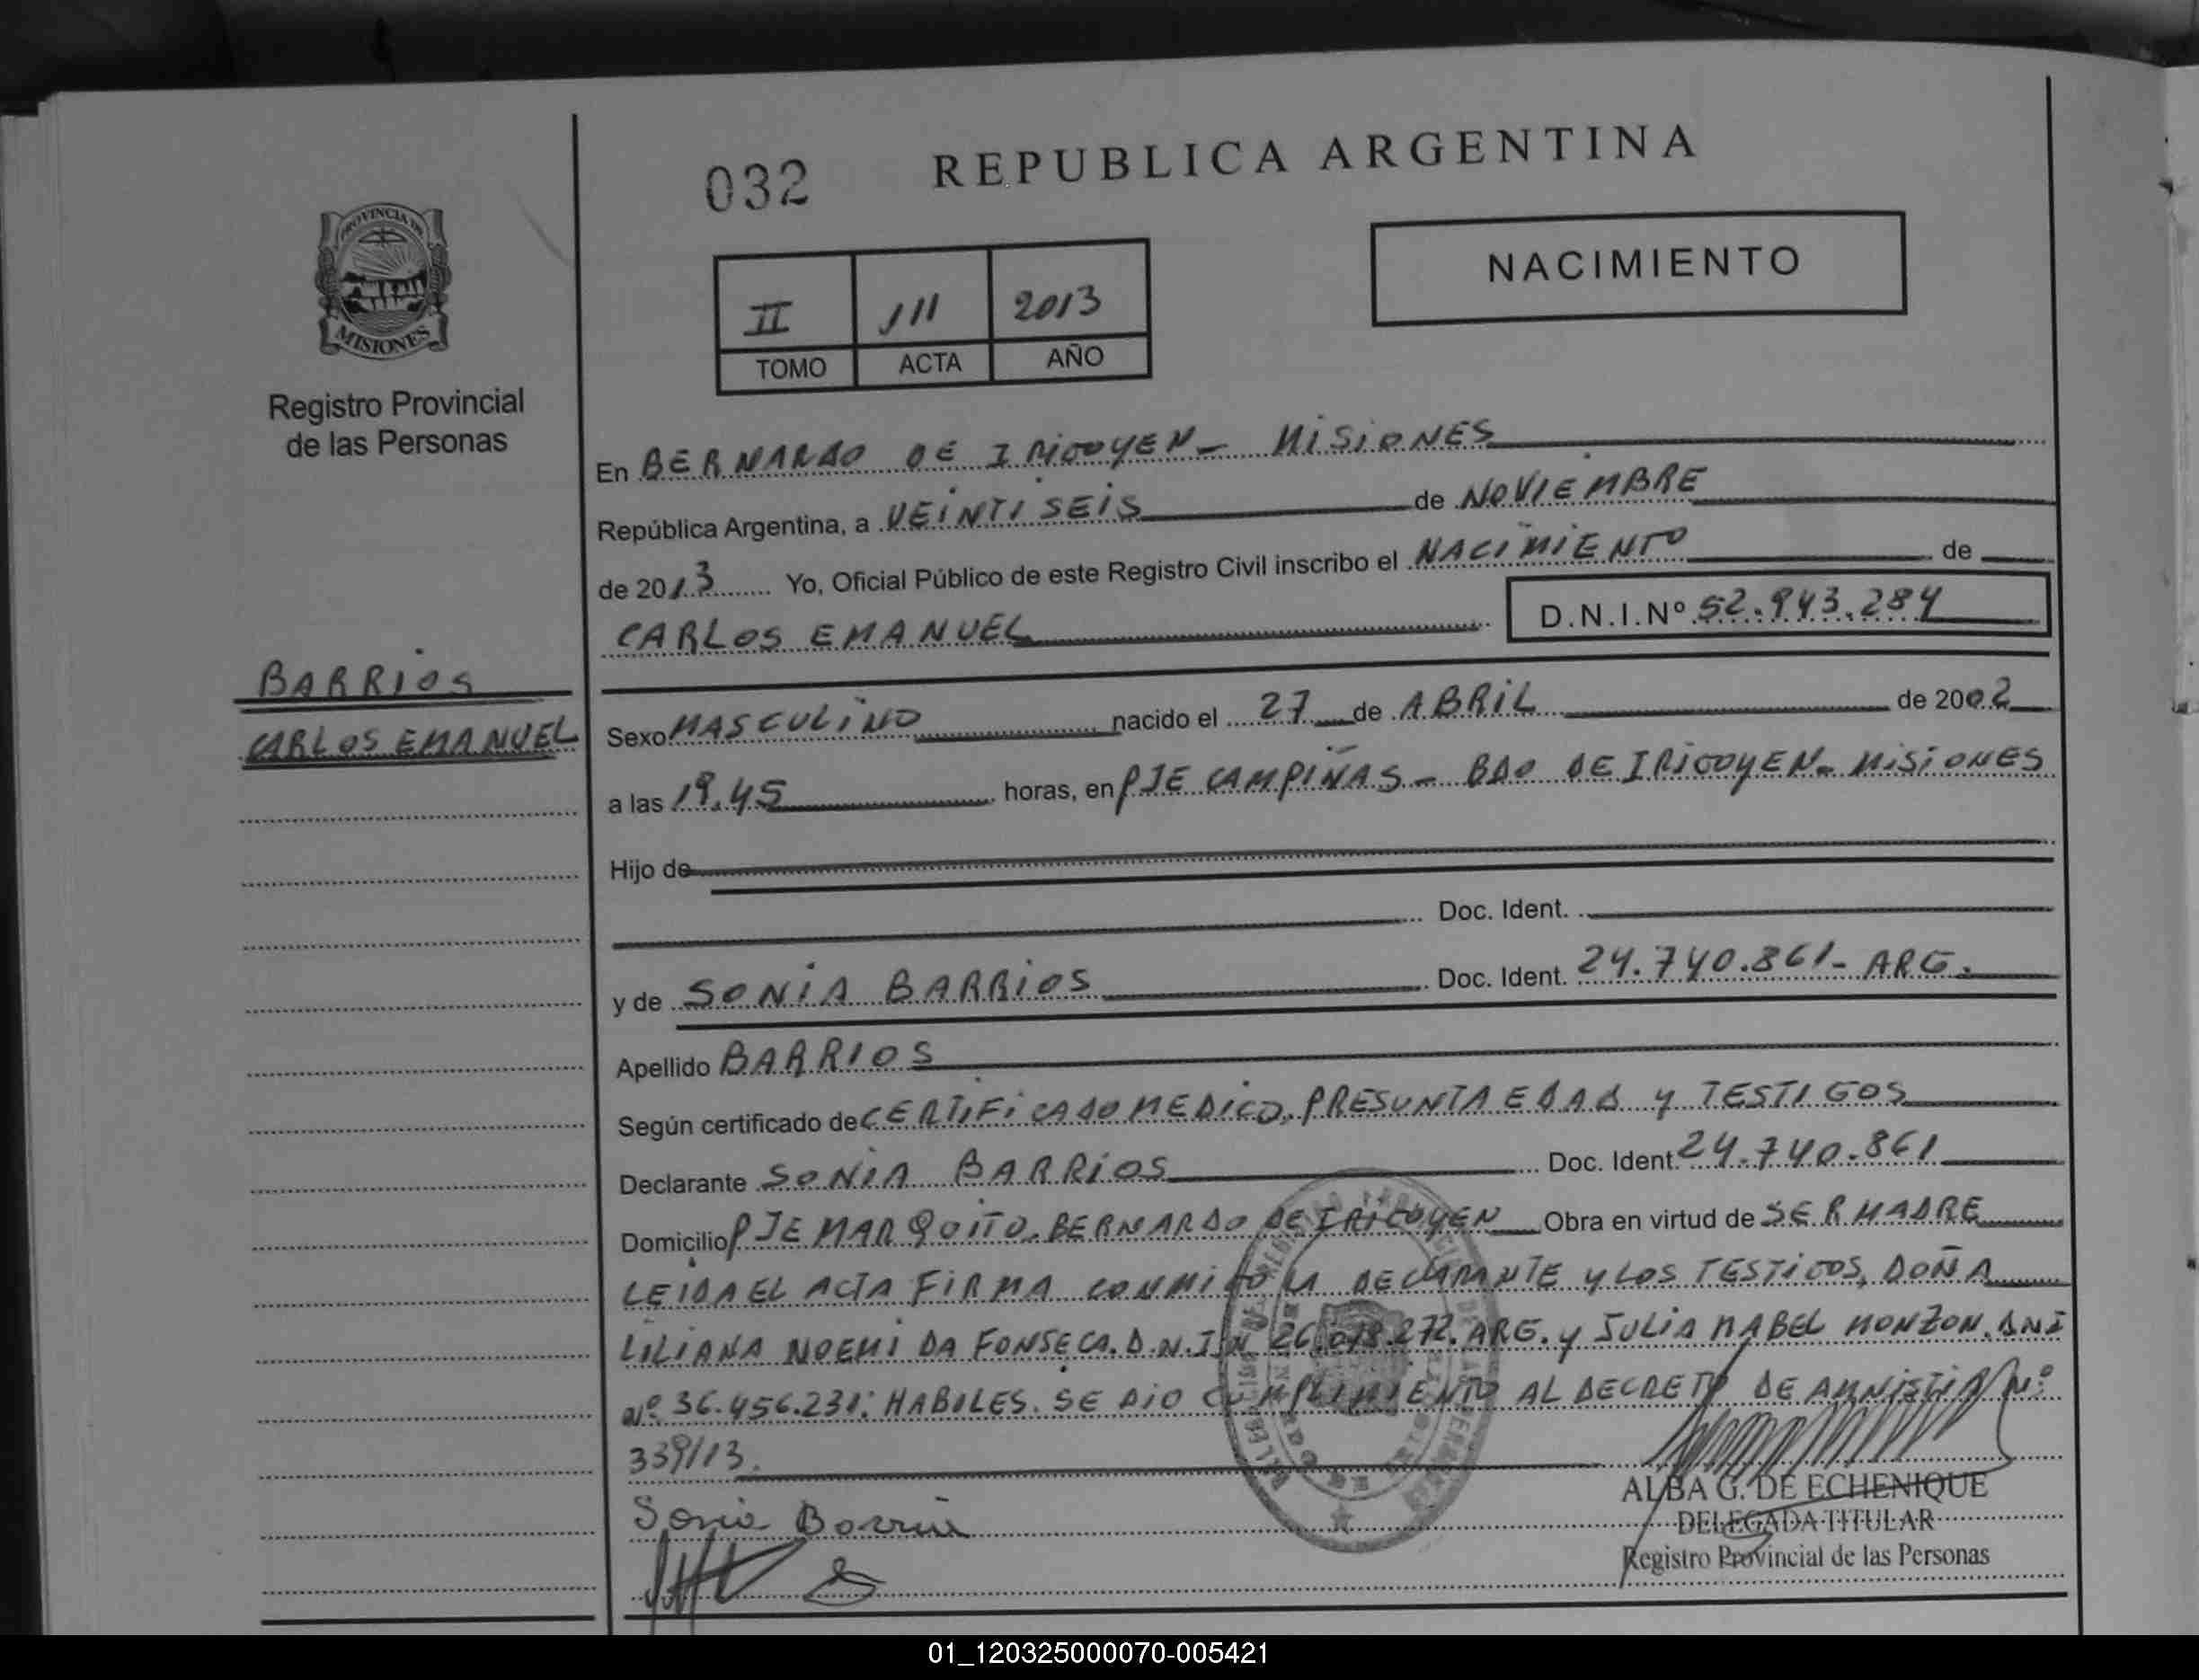 032 REPUBLICA ARGENTINA
PROVINCIA DE
MISIONES
Registro Provincial
de las Personas
NACIMIENTO
II 111 2013
TOMO ACTA AÑO
En BERNARDO DE IRIGOYEN - MISIONES
República Argentina, a VEINTISEIS de NOVIEMBRE
de 2013 Yo, Oficial Público de este Registro Civil inscribo el NACIMIENTO de
CARLOS EMANUEL D.N.I.Nº 52.943.284
BARRIOS
CARLOS EMANUEL
Sexo MASCULINO nacido el 27 de ABRIL de 2002
a las 19.45 horas, en PJE CAMPIÑAS - BDO DE IRIGOYEN - MISIONES
Hijo de
Doc. Ident.
y de SONIA BARRIOS Doc. Ident. 24.740.861 - ARG.
Apellido BARRIOS
Según certificado de CERTIFICADO MEDICO, PRESUNTA EDAD y TESTIGOS
Declarante SONIA BARRIOS Doc. Ident. 24.740.861
Domicilio PJE MARQUITO. BERNARDO DE IRIGOYEN Obra en virtud de SER MADRE
LEIDA EL ACTA FIRMA CONMIGO LA DECLARANTE y LOS TESTIGOS, DOÑA
LILIANA NOEMI DA FONSECA. D.N.I Nº 26.018.272. ARG. y JULIA MABEL MONZON. DNI
Nº 36.456.231: HABILES. SE DIO CUMPLIMIENTO AL DECRETO DE AMNISTIA Nº
339/13.
Sonia Barrios
ALBA G. DE ECHENIQUE
DELEGADA TITULAR
Registro Provincial de las Personas
01_120325000070-005421